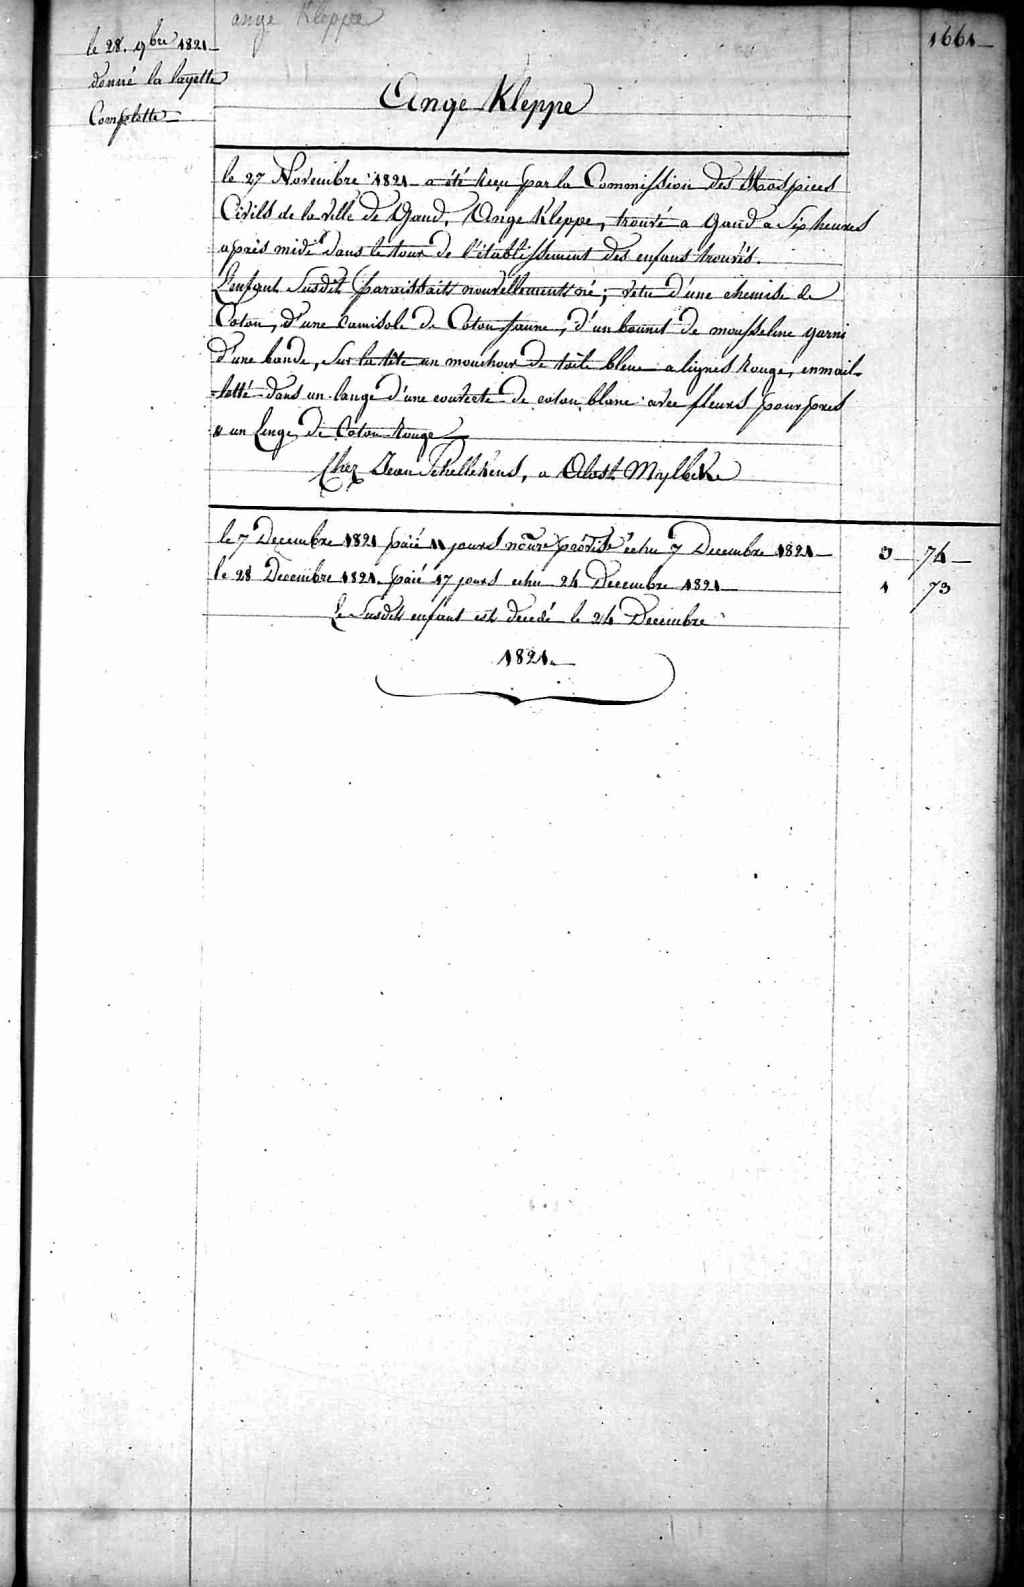 ange Kleppe
1661
le 28. 9bre 1821
donné la layette
Complette
Ange Kleppe
le 27 Novembre 1821 a été Reçu par la Commission des Hospices
Civils de la Ville de Gand, Ange Kleppe, trouvé a Gand a Six heures
après midi dans le tour de l'établissement des enfans trouvés.
L'enfant Susdit paraissait nouvellement né, vetu d'une chemise de
Coton, d'une Camisole de Coton Jaune, d'un bonnet de mousseline garni
d'une bande, Sur la tête un mouchoir de toile bleue a lignes Rouge, enmail-
lotté dans un lange d'une couverte de coton blanc avec fleurs pourpres
un Lenge de Coton Rouge
Chez Jean Schellekens, a Alost Mylbeke
le 7 Decembre 1821 paié 11 jours échu 7 Decembre 1821 3 74
le 28 Decembre 1821 paié 17 jours echu 24 Decembre 1821 1 73
Le Susdit enfant est decedé le 24 Decembre
1821.